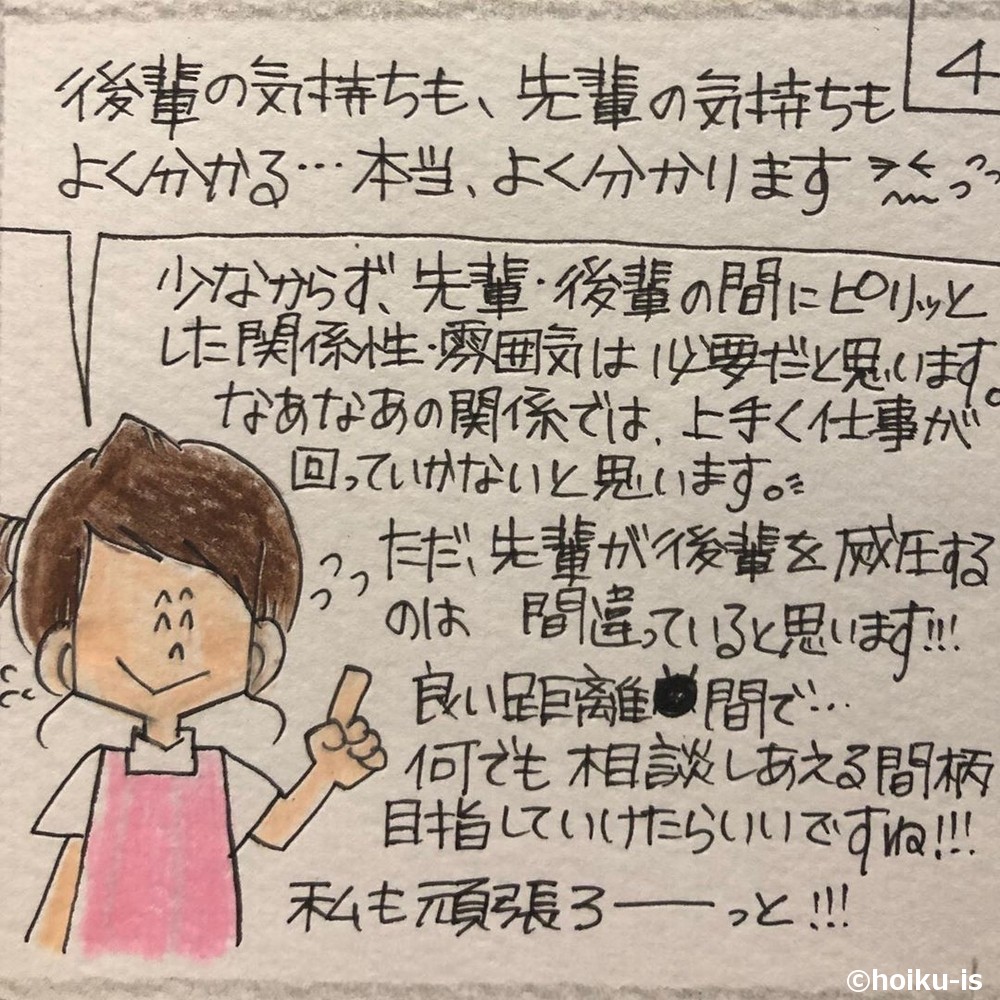 4
後輩の気持ちも、先輩の気持ちも
よく分かる…本当、よく分かります
少なからず、先輩・後輩の間にピリッと
した関係性・雰囲気は必要だと思います。
なあなあの関係では、上手く仕事が
回っていかないと思います。
ただ、先輩が後輩を威圧する
のは 間違っていると思います!!!
良い距離間で…
何でも相談しあえる間柄
目指していけたらいいですね!!!
私も頑張ろ——っと!!!
©hoiku-is